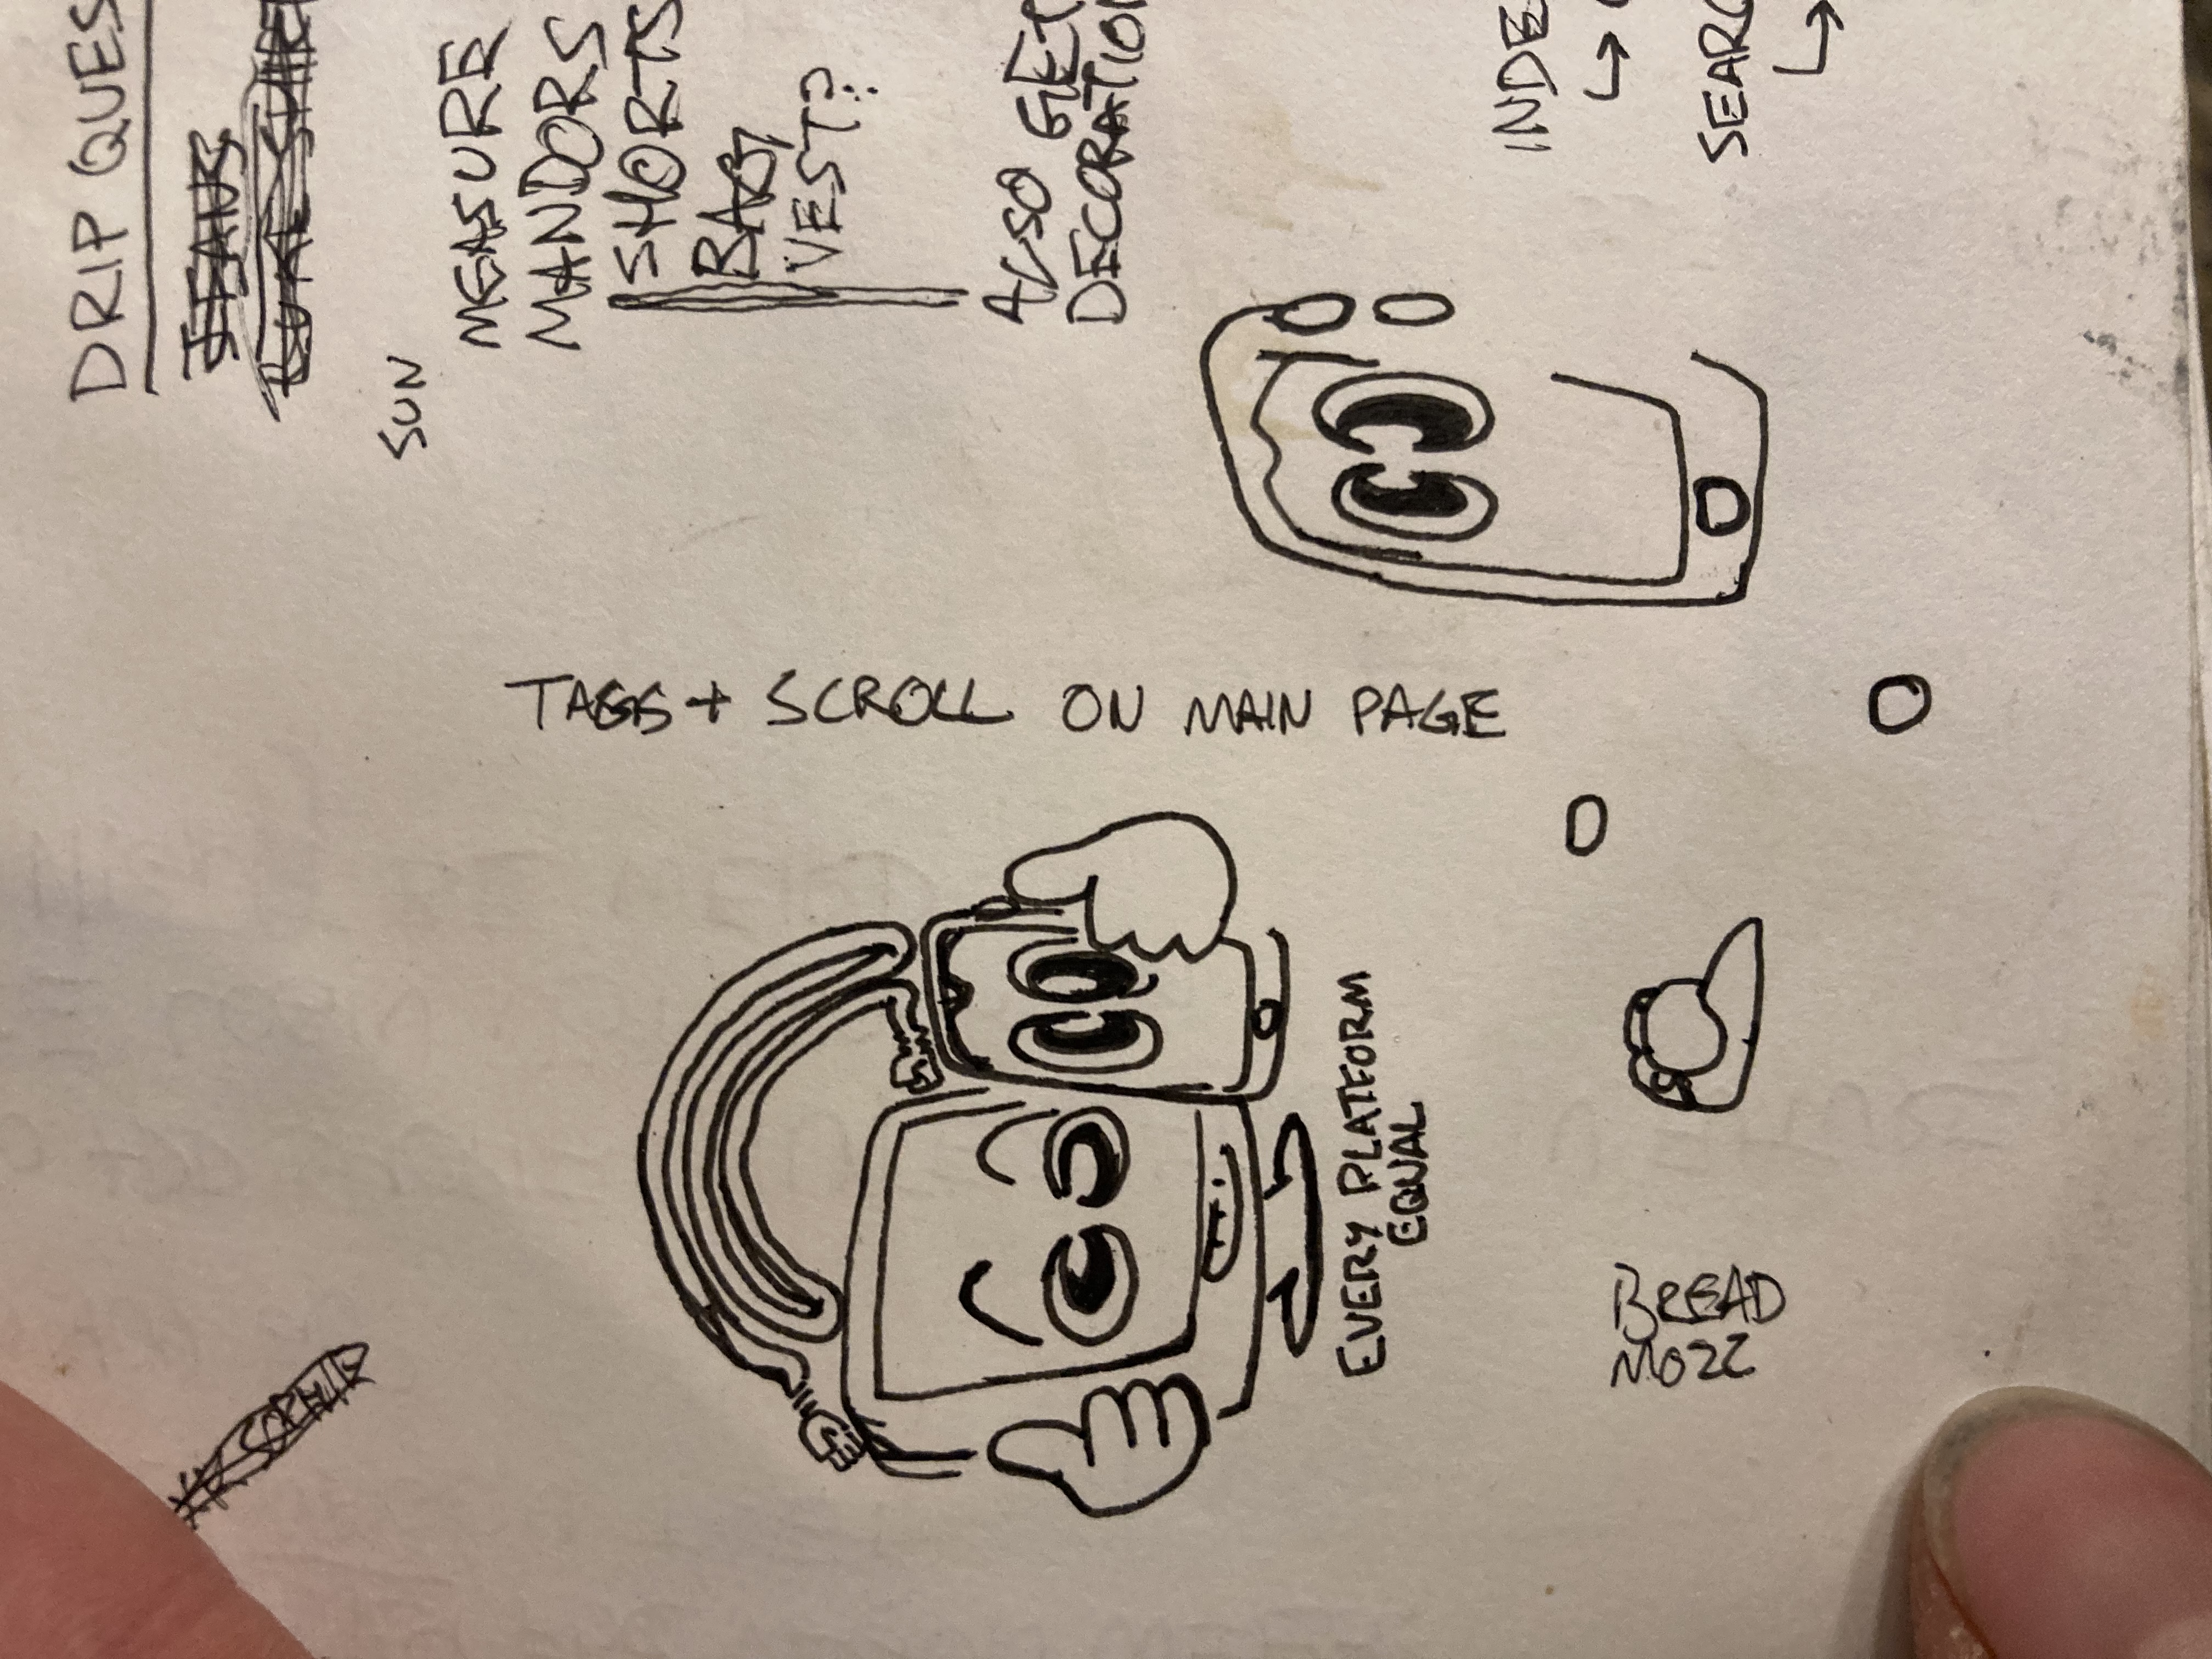 DRIP QUES
JEANS
SUN
MEASURE
MANDORS
SHORTS
BABY
VEST?
ALSO GET
DECORATION
INDE
↳
SEARC
↳
TAGS + SCROLL ON MAIN PAGE
EVERY PLATFORM
EQUAL
BREAD
MOZZ